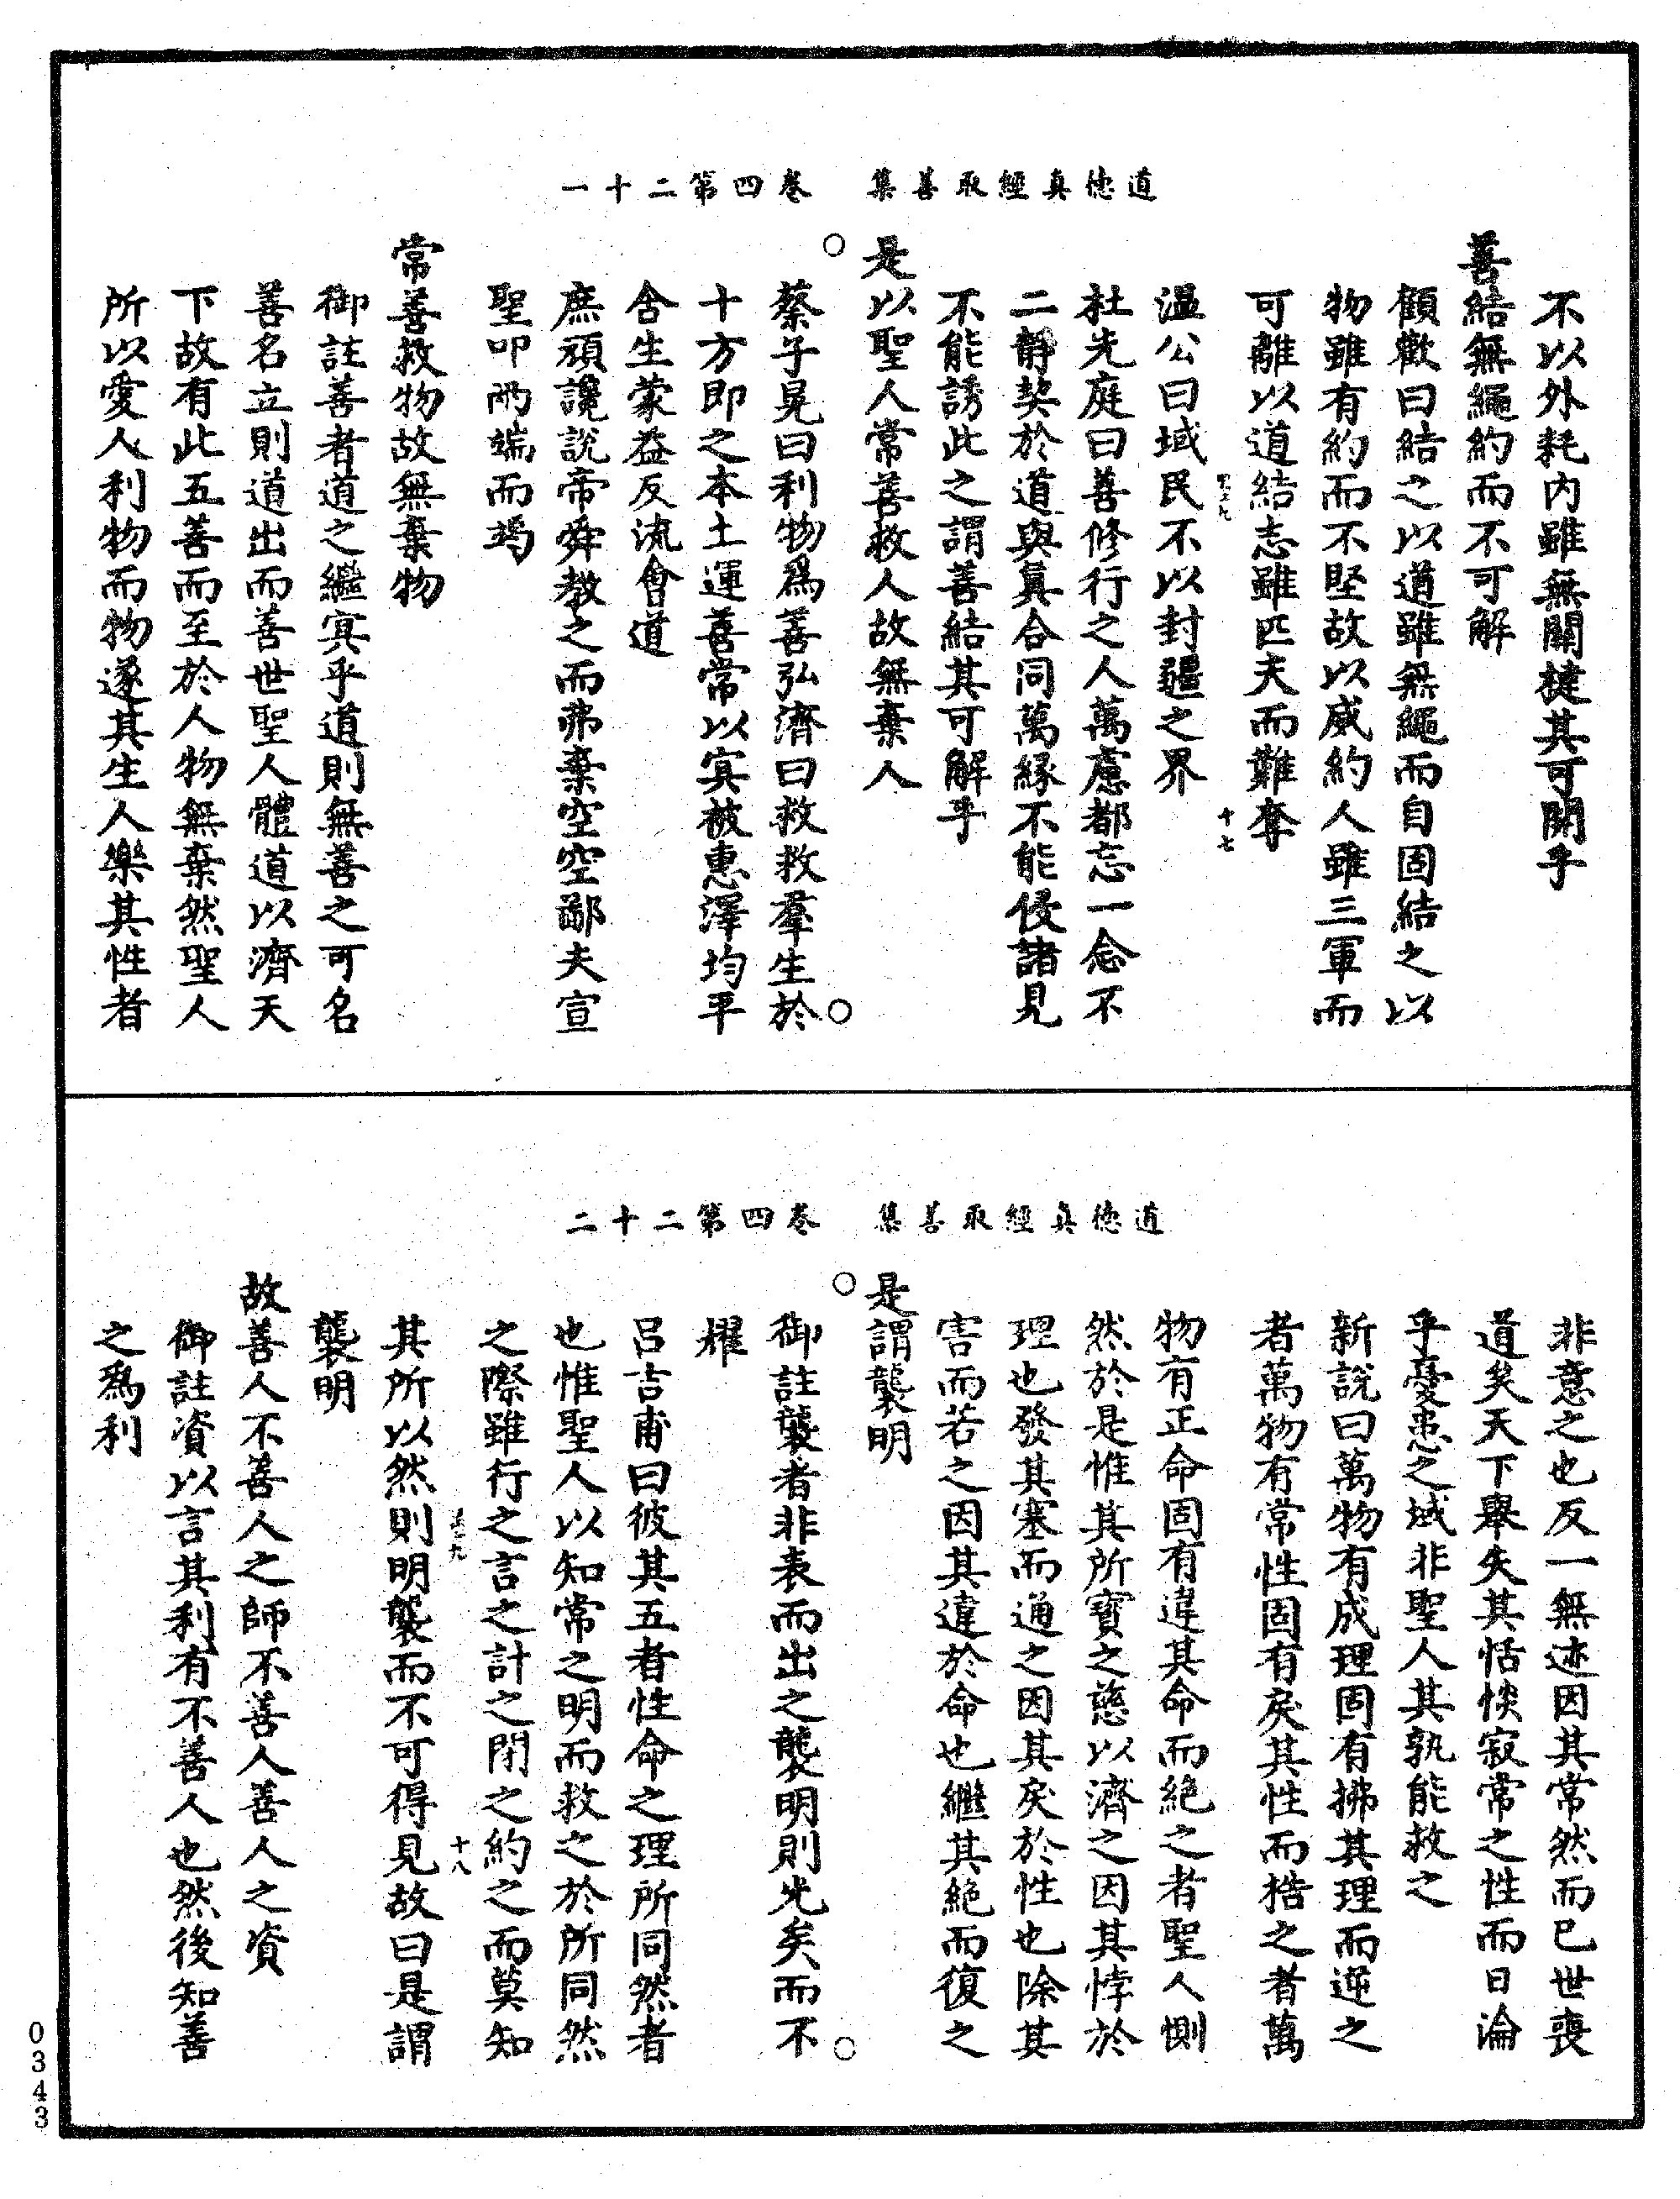 道德真經取善集　卷四第二十一
不以外耗內雖無關揵其可開乎
善結無繩約而不可解
顧歡曰結之以道雖無繩而自固結之以
物雖有約而不堅故以威約人雖三軍而
可離以道結志雖匹夫而難奪
十七
溫公曰域民不以封疆之界
杜光庭曰善修行之人萬慮都忘一念不
二靜契於道與真合同萬緣不能侵諸見
不能誘此之謂善結其可解乎
是以聖人常善救人故無棄人
蔡子晃曰利物爲善弘濟曰救救羣生於
十方即之本土運善常以冥被惠澤均平
含生蒙益反流會道
庶頑讒說帝舜教之而弗棄空空鄙夫宣
聖叩兩端而竭
常善救物故無棄物
御註善者道之繼冥乎道則無善之可名
善名立則道出而善世聖人體道以濟天
下故有此五善而至於人物無棄然聖人
所以愛人利物而物遂其生人樂其性者
道德真經取善集　卷四第二十二
非意之也反一無迹因其常然而已世喪
道矣天下舉失其恬惔寂常之性而日淪
乎憂患之域非聖人其孰能救之
新說曰萬物有成理固有拂其理而逆之
者萬物有常性固有戾其性而梏之者萬
物有正命固有違其命而絕之者聖人惻
然於是惟其所寶之慈以濟之因其悖於
理也發其塞而通之因其戾於性也除其
害而若之因其違於命也繼其絕而復之
是謂襲明
御註襲者非表而出之襲明則光矣而不
耀
呂吉甫曰彼其五者性命之理所同然者
也惟聖人以知常之明而救之於所同然
之際雖行之言之計之閉之約之而莫知
其所以然則明襲而不可得見故曰是謂
十八
襲明
故善人不善人之師不善人善人之資
御註資以言其利有不善人也然後知善
之爲利
0343